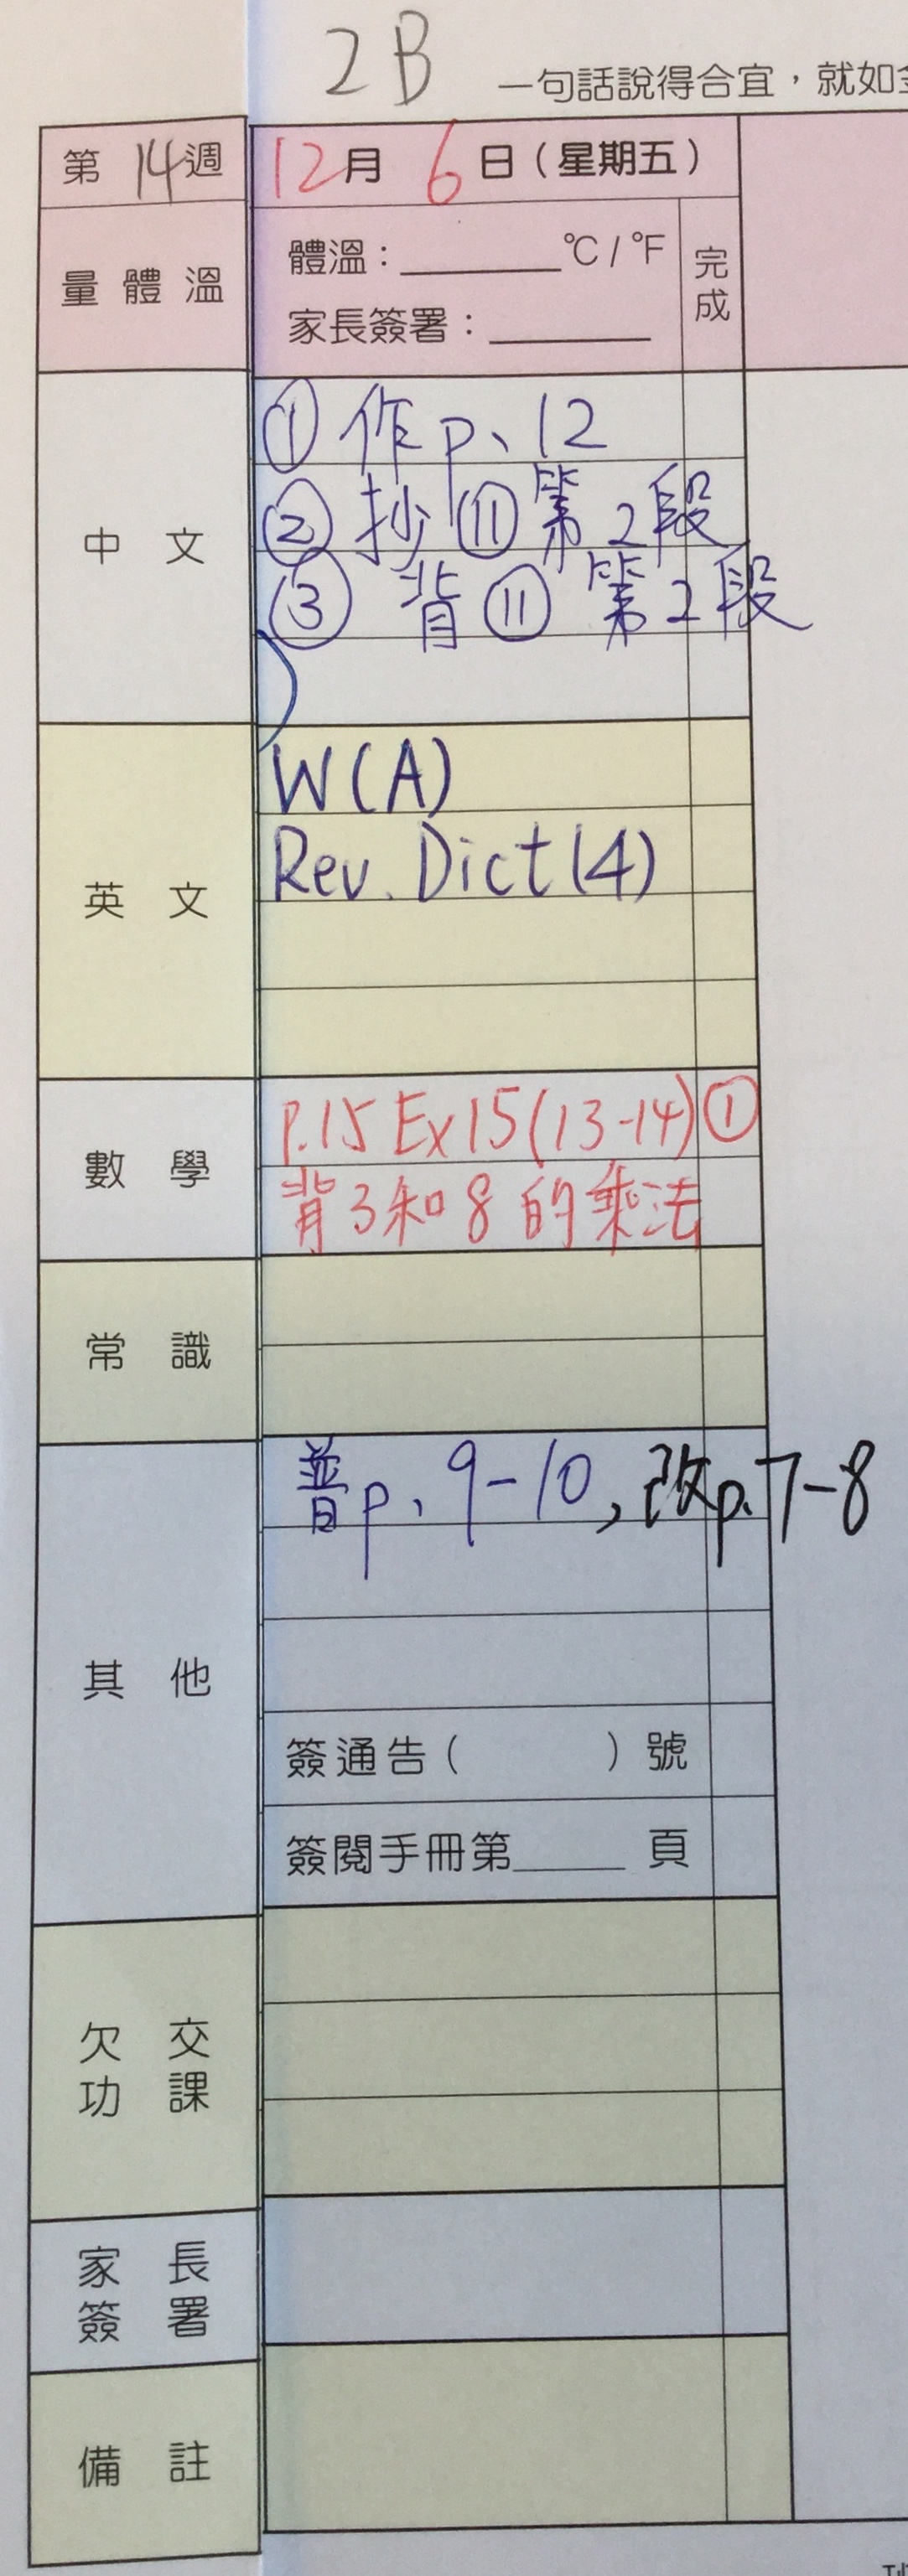 2B
一句話說得合宜，就如
第 14 週 12 月 6 日（星期五）
量體溫
體溫：______ °C / °F
家長簽署：______
完成
中文
① 作p、12
② 抄⑪第2段
③ 背⑪第2段
英文
W(A)
Rev. Dict(4)
數學
P.15 Ex15(13-14)①
背3和8的乘法
常識
其他
普p、9-10，改p.7-8
簽通告（ ）號
簽閱手冊第____頁
欠交
功課
家長
簽署
備註